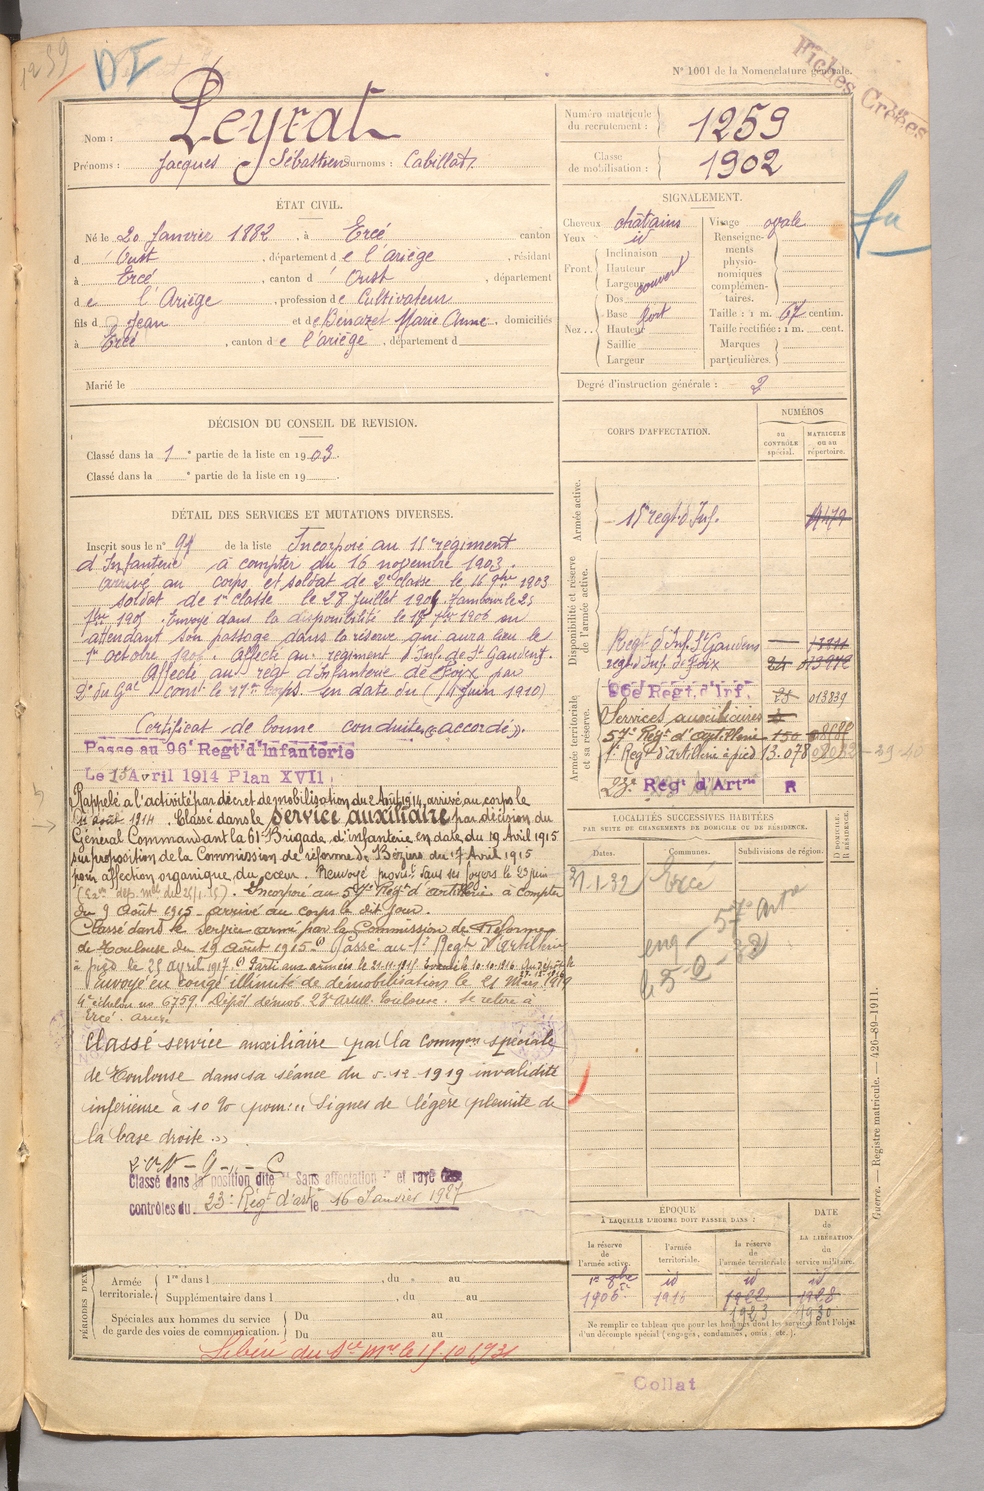 1259
D I
N° 1001 de la Nomenclature générale.
Fiches Créées
Nom : Peyrat
Prénoms : Jacques Sébastien Surnoms : Cabillat
Numéro matricule du recrutement : 1259
Classe de mobilisation : 1902
ÉTAT CIVIL.
Né le 20 Janvier 1882, à Ercé canton
d'Oust, département de l'ariège, résidant
à Ercé, canton d'Oust, département
de l'Ariège, profession de Cultivateur
fils d Jean et de Benazet Marie Anne, domiciliés
à Ercé, canton de l'ariège, département d
Marié le
SIGNALEMENT.
Cheveux châtains
Yeux id
Front. Inclinaison
Hauteur
Largeur couvert
Nez.. Dos
Base fort
Hauteur
Saillie
Largeur
Visage ovale
Renseignements physionomiques complémentaires.
Taille : 1 m. 67 centim.
Taille rectifiée : 1 m. cent.
Marques particulières.
Degré d'instruction générale : 2
DÉCISION DU CONSEIL DE REVISION.
Classé dans la 1e partie de la liste en 1903.
Classé dans la e partie de la liste en 19
DÉTAIL DES SERVICES ET MUTATIONS DIVERSES.
Inscrit sous le n° 94 de la liste Incorporé au 15e régiment
d'Infanterie à compter du 16 novembre 1903.
arrivé au corps et soldat de 2e classe le 16 9bre 1903
soldat de 1re classe le 28 Juillet 1904. Tambour le 25
1905. Envoyé dans la disponibilité le 1906 en
attendant son passage dans la réserve qui aura lieu le
1er octobre 1906. Affecté au régiment d'Inf. de St Gaudens.
Affecté au régt d'Infanterie de Foix par
Don du Gal Comt le 17e Corps en date du (14 Juin 1910)
Certificat de bonne conduite « accordé ».
Passé au 96e Régt d'Infanterie
Le 15 Avril 1914 Plan XVII
Rappelé à l'activité par décret de mobilisation du 2 Août 1914, arrivé au corps le
août 1914. Classé dans le service auxiliaire par décision du
Général Commandant la 61e Brigade d'infanterie en date du 19 Avril 1915
sur proposition de la Commission de réforme de Béziers du 17 Avril 1915
pour affection organique du cœur. Renvoyé provist dans ses foyers le 23 juin
Incorporé au 57e Régt d'artillerie à compter
du 9 Août 1915 arrivé au corps le dit jour.
Classé dans le service armé par la Commission de Réforme
de Toulouse du 19 Août 1915. Passé au 1er Regt d'artillerie
à pied le 25 avril 1917. Parti aux armées le 21-11-1915
envoyé en congé illimité de démobilisation le 21 Mars 1919
4e échelon no 6759 Dépôt démob. 23e artill. Toulouse. Se retire à
Ercé. Ariège
Classé service auxiliaire par la Common spéciale
de Toulouse dans sa séance du 5-12-1919 invalidité
inférieure à 10 % pour : « Signes de légère pleurite de
la base droite. »
Classé dans la position dite "Sans affectation" et rayé des
contrôles du 23e Régt d'artie le 16 Janvier 1927
CORPS D'AFFECTATION.
NUMÉROS
au CONTRÔLE spécial.
MATRICULE ou au répertoire.
Armée active.
15e regt d'Inf.
Disponibilité et réserve de l'armée active.
Regt d'Inf. St Gaudens
regt d'Inf. de Foix
Armée territoriale et sa réserve.
96e Regt. d'Inf. 013839
Services auxiliaires
57e Régt d'artillerie 150
1er Regt d'artillerie à pied 13.078
23e Régt d'Artie R
LOCALITÉS SUCCESSIVES HABITÉES
PAR SUITE DE CHANGEMENTS DE DOMICILE OU DE RÉSIDENCE.
Dates. Communes. Subdivisions de région. D. DOMICILE. R. RÉSIDENCE.
21.1.32 Ercé
57e Artie
ÉPOQUE
À LAQUELLE L'HOMME DOIT PASSER DANS :
la réserve de l'armée active.
l'armée territoriale.
la réserve de l'armée territoriale
DATE de LA LIBÉRATION du service militaire.
1er 8bre id id id
1906 1916 1922 1928
1923 1930
Ne remplir ce tableau que pour les hommes dont les services font l'objet
d'un décompte spécial (engagés, condamnés, omis, etc.).
PÉRIODES D'EX
Armée territoriale. 1re dans l , du au
Supplémentaire dans l , du au
Spéciales aux hommes du service de garde des voies de communication. Du au
Du au
Libéré du sce Mre le 15.10.1931
Collat
Guerre. — Registre matricule. — 426-89-1911.